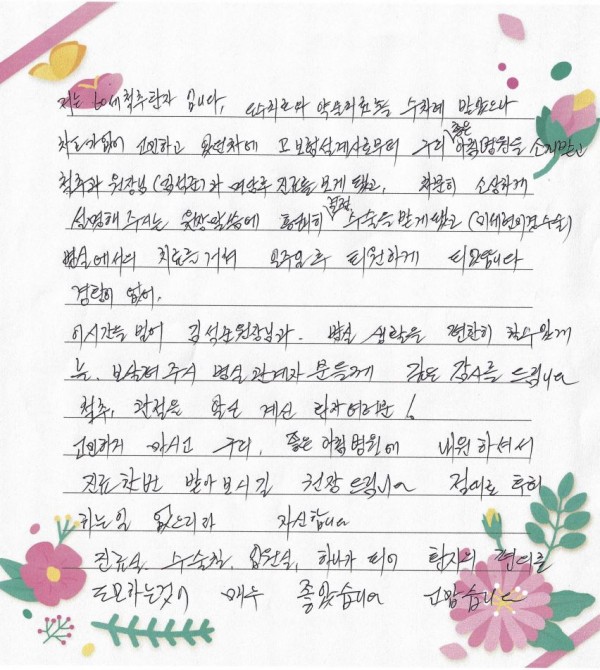 저는 60세 척추환자 입니다, 약물치료등을 수차례 받았으나
차도가없이 고민하고 있던차에 모 보험설계사로부터 구리 좋은 아침병원을 소개받고
척추과 원장님 (김석준)와 진료를 보게 됐고, 차분히 소상하게
설명해 주시는 원장말씀에 흔쾌히 결정 수술을 받게 됐고 (미세현미경수술)
병실에서의 치료를 거쳐 일주일후 퇴원하게 되었읍니다
경황이 없어,
이시간을 빌어 김석준원장님과. 병실 생활을 편한히 할수있게
끔, 보살펴주신 병실관계자 분들께 감사를 드립니다
척추, 관절을 앓고 계신 환자여러분!
고민하지 마시고 구리, 좋은 아침병원에 내원하셔서
진료한번 받아보시길 권장 드립니다 절대로 후회
하는일 없으리라 자신합니다
진료실, 수술실, 입원실, 하나가 되어 환자의 편의를
도모하는것이 매우 좋았습니다 고맙습니다